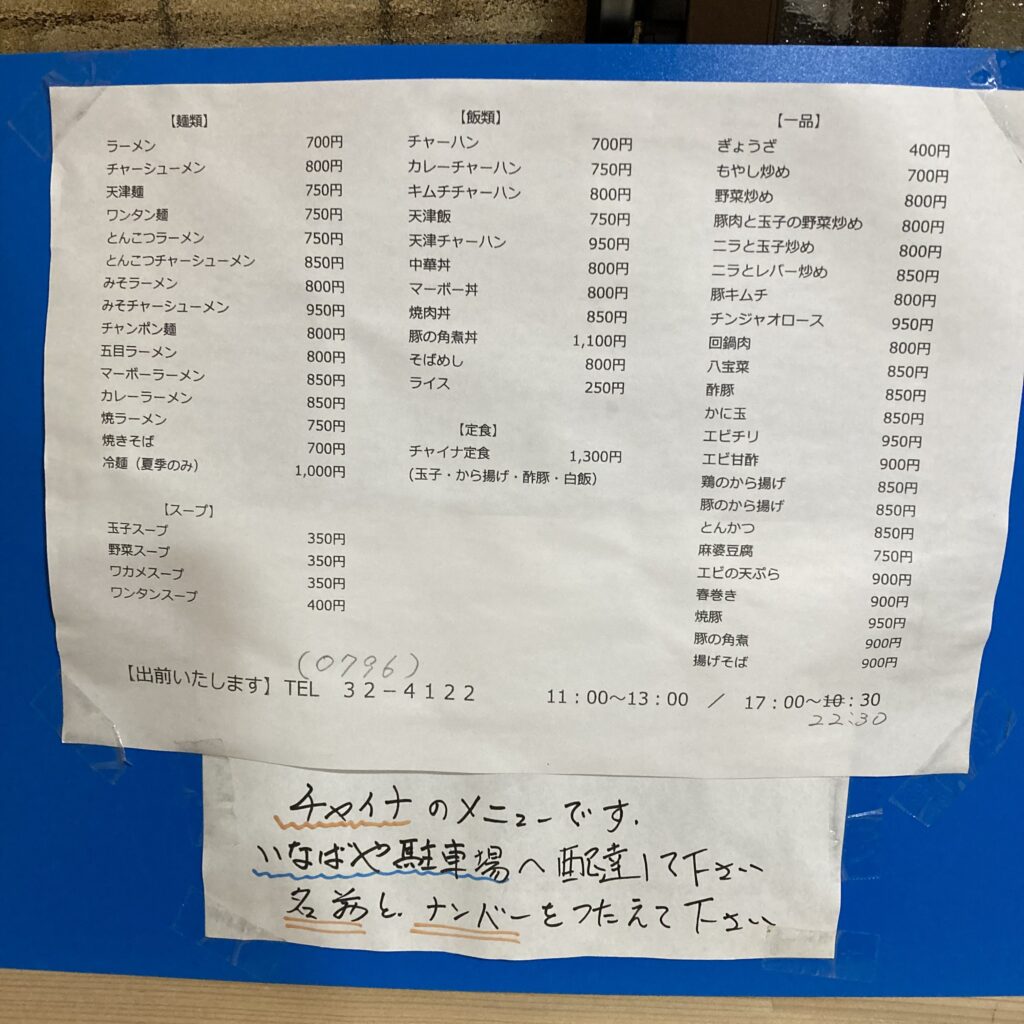 【麺類】
ラーメン 700円
チャーシューメン 800円
天津麺 750円
ワンタン麺 750円
とんこつラーメン 750円
とんこつチャーシューメン 850円
みそラーメン 800円
みそチャーシューメン 950円
チャンポン麺 800円
五目ラーメン 800円
マーボーラーメン 850円
カレーラーメン 850円
焼ラーメン 750円
焼きそば 700円
冷麺（夏季のみ） 1,000円
【スープ】
玉子スープ 350円
野菜スープ 350円
ワカメスープ 350円
ワンタンスープ 400円
【飯類】
チャーハン 700円
カレーチャーハン 750円
キムチチャーハン 800円
天津飯 750円
天津チャーハン 950円
中華丼 800円
マーボー丼 800円
焼肉丼 850円
豚の角煮丼 1,100円
そばめし 800円
ライス 250円
【定食】
チャイナ定食 1,300円
(玉子・から揚げ・酢豚・白飯)
【一品】
ぎょうざ 400円
もやし炒め 700円
野菜炒め 800円
豚肉と玉子の野菜炒め 800円
ニラと玉子炒め 800円
ニラとレバー炒め 850円
豚キムチ 800円
チンジャオロース 950円
回鍋肉 800円
八宝菜 850円
酢豚 850円
かに玉 850円
エビチリ 950円
エビ甘酢 900円
鶏のから揚げ 850円
豚のから揚げ 850円
とんかつ 850円
麻婆豆腐 750円
エビの天ぷら 900円
春巻き 900円
焼豚 950円
豚の角煮 900円
揚げそば 900円
(0796)
【出前いたします】TEL 32－4122 11：00～13：00 ／ 17：00～10：30
22:30
チャイナのメニューです.
いなばや駐車場へ配達して下さい
名前と、ナンバーをつたえて下さい